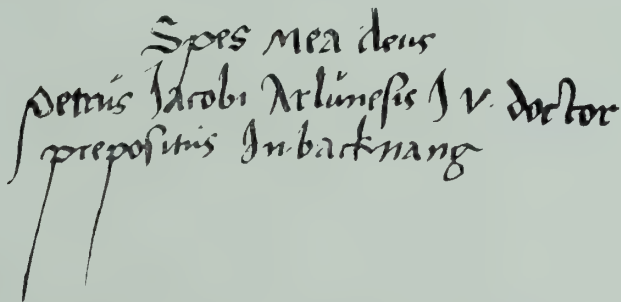 Spes mea deus
petrus Jacobi Arlunesis J V. doctor
prepositus In backnang